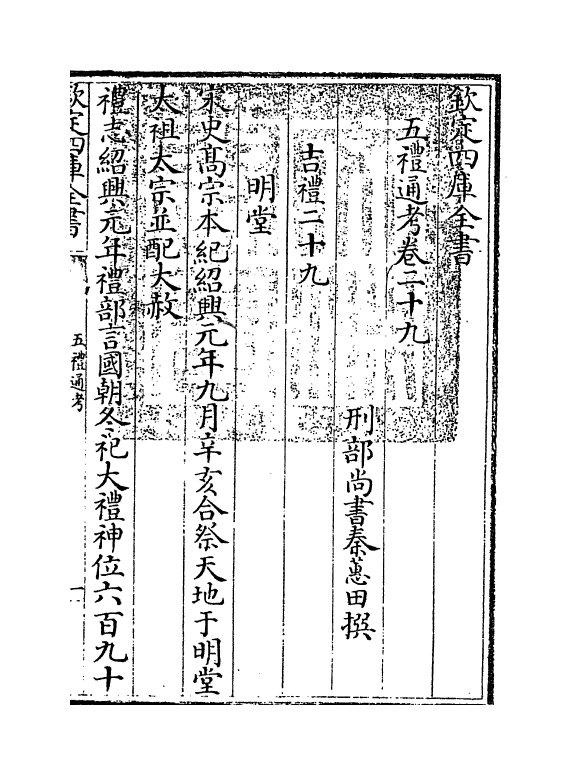 欽定四庫全書
五禮通考卷二十九
刑部尚書秦蕙田撰
吉禮二十九
明堂
宋史髙宗本紀紹興元年九月辛亥合祭天地于明堂
太祖太宗並配大赦
禮志紹興元年禮部言國朝冬祀大禮神位六百九十
欽定四庫全書
五禮通考
一